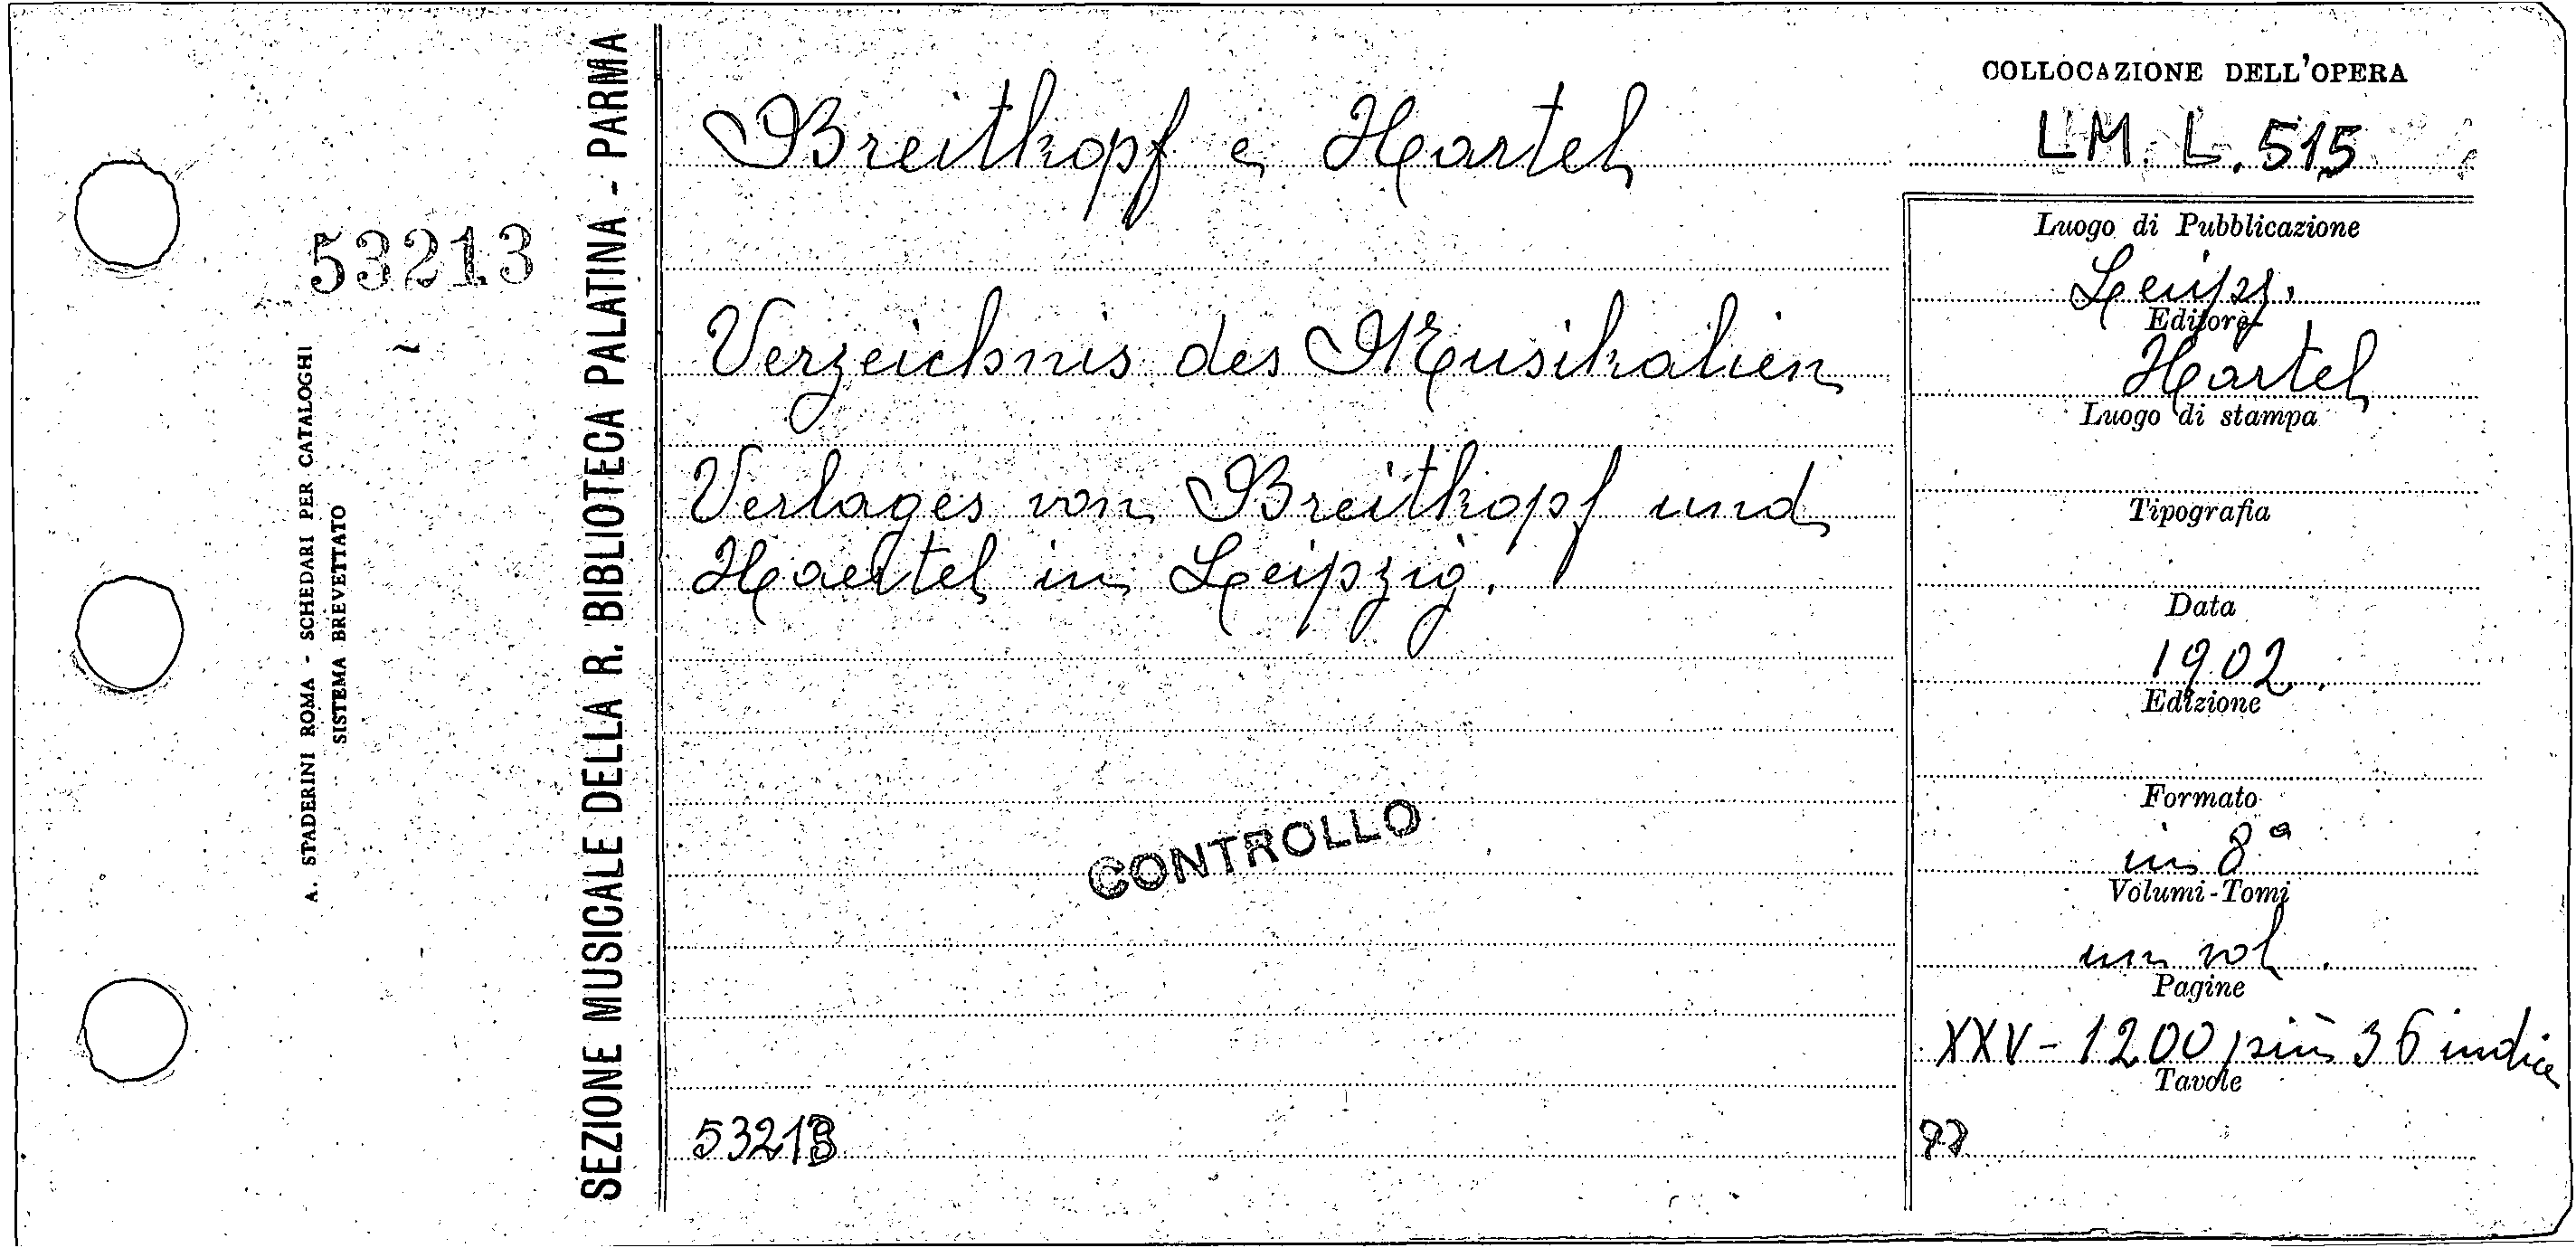 53213
A. STADERINI ROMA - SCHEDARI PER CATALOGHI
SISTEMA BREVETTATO
SEZIONE MUSICALE DELLA R. BIBLIOTECA PALATINA - PARMA
Breitkopf e Hartel
Verzeichnis des Musikalien
Verlages von Breitkopf und
Haertel in Leipzig.
CONTROLLO
53213
COLLOCAZIONE DELL'OPERA
LM. L. 515
Luogo di Pubblicazione
Leipz.
Editore
Hartel
Luogo di stampa
Tipografia
Data
1902.
Edizione
Formato
in 8ª
Volumi-Tomi
un vol.
Pagine
XXV - 1200 più 36 indice
Tavole